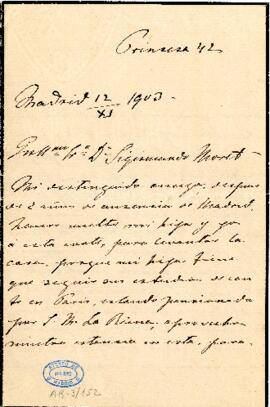 Princesa 42
Madrid 12/XI 1903-
Sr. Dn. Sigismundo Moret-
Mi distinguido amigo, despues
de 2 años de ausencia de Madrid
hemos vuelto mi hija y yo
á esta corte, para levantar la
casa, porque mi hija tiene
que seguir sus estudios de can-
to en Paris, estando pensionada
por S. M. La Reina, aprovecho
nuestra estancia en esta, para
AR-3/152